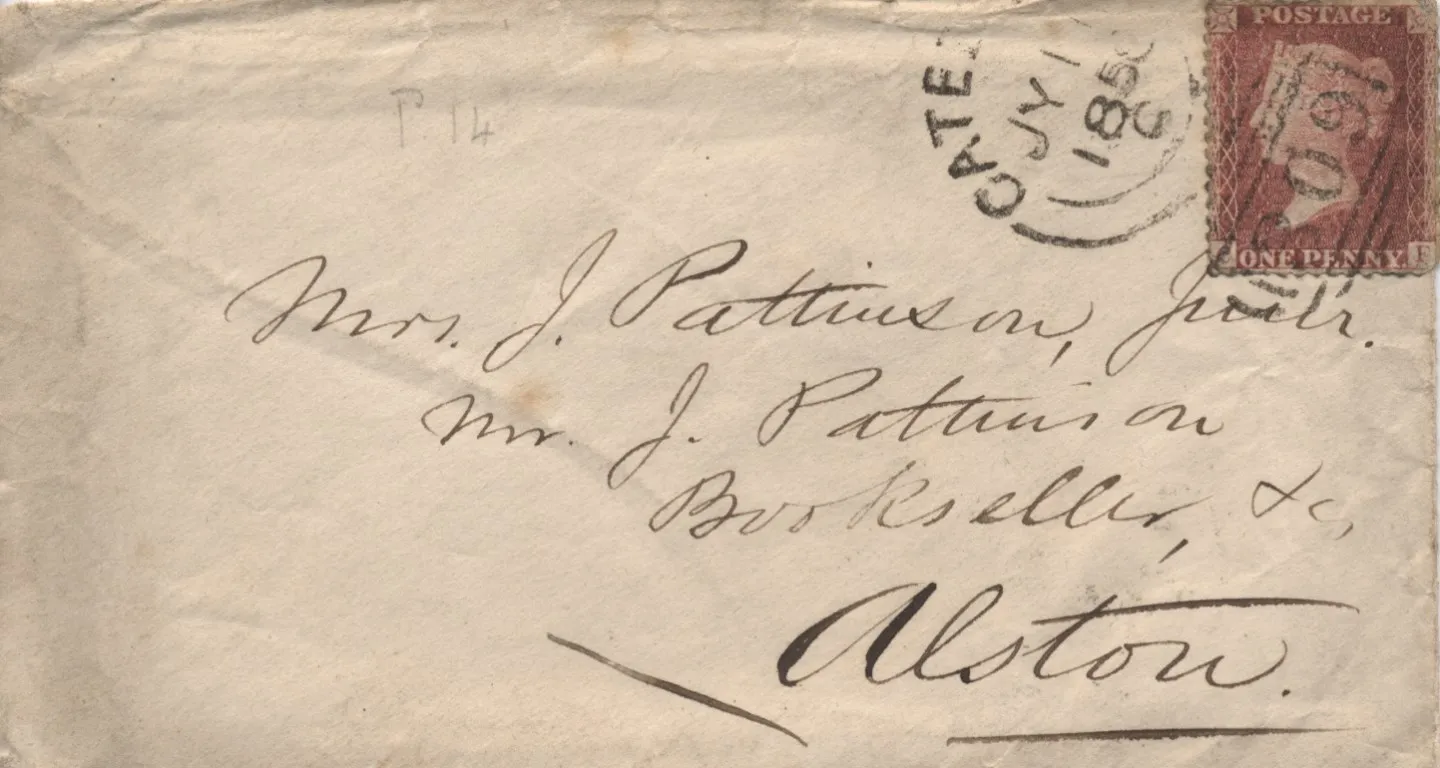 POSTAGE
CATE
JY 1
185
6
097
ONE PENNY.
P. 14
Mrs. J. Pattinson, Junr.
Mr. J. Pattinson
Bookseller, &c,
Alston.